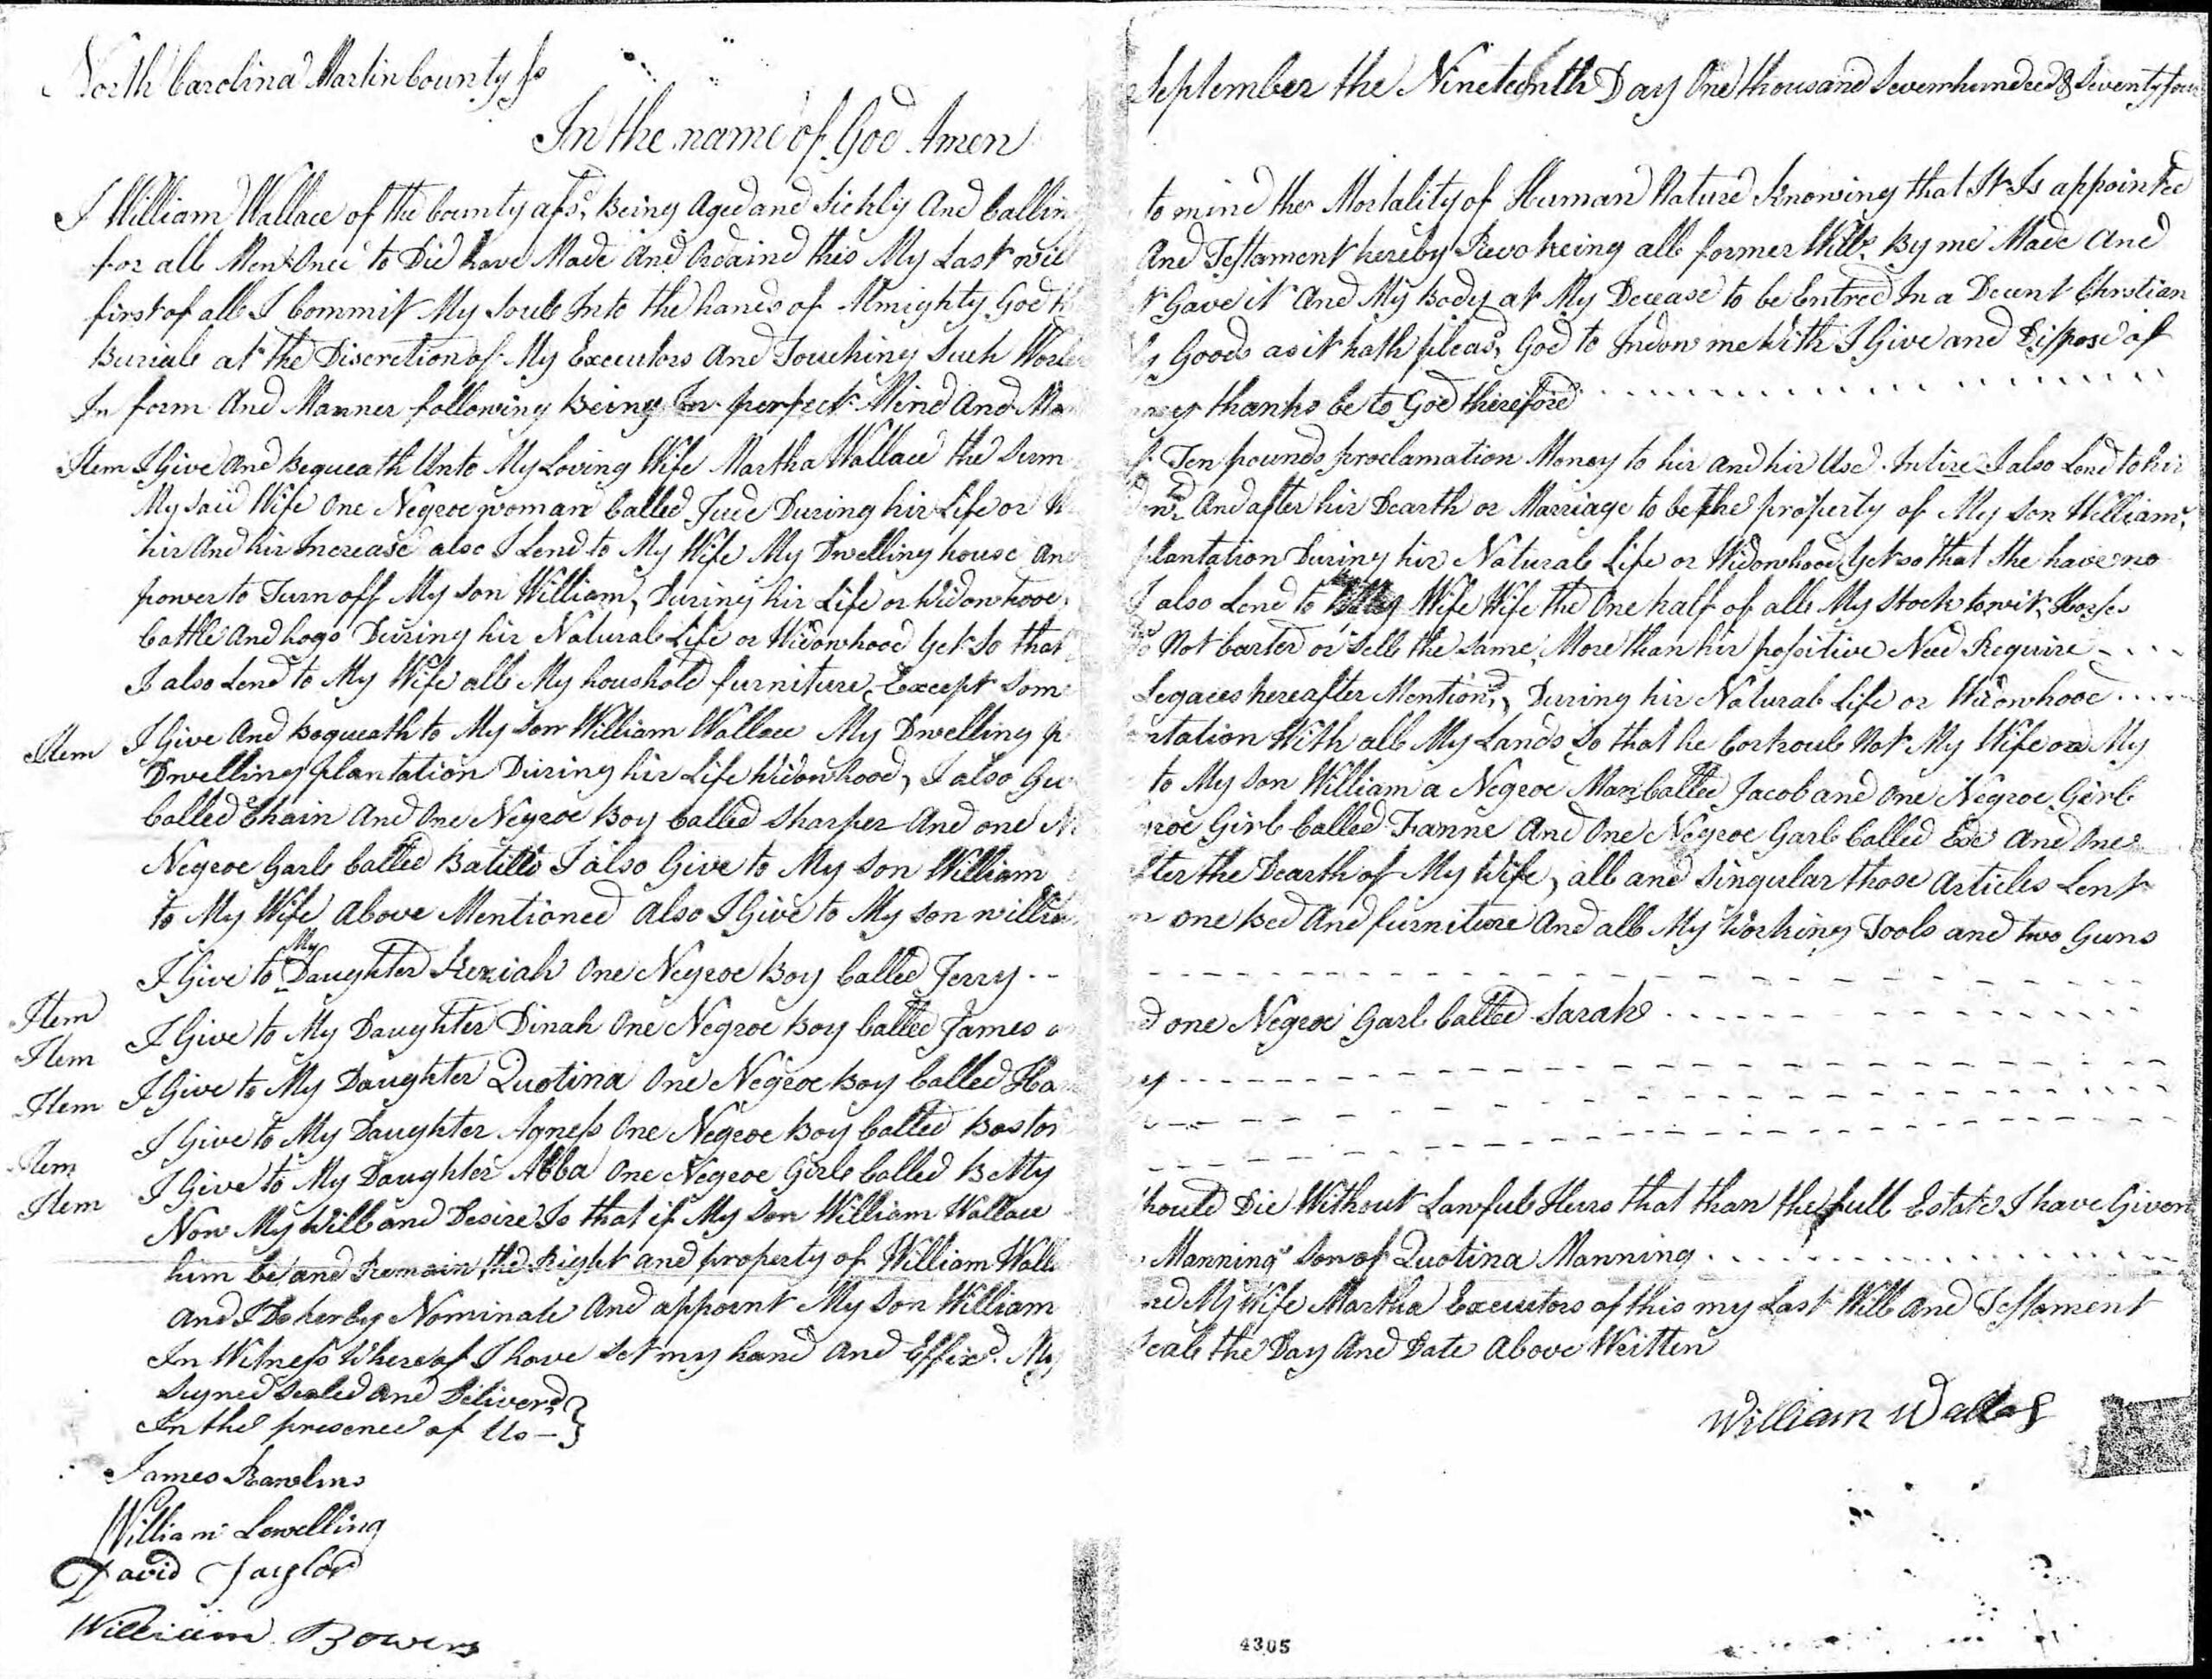 North Carolina Martin County Ss September the Nineteenth Day One thousand Sevenhundred & Seventy four
In the name of God Amen
I William Wallace of the County afsd, Being Aged and Sickly And Callin to mind the Mortality of Human Nature Knowing that It Is appointed
for all Men Once to Die have Made And Ordaind this My Last will And Testament hereby Revokeing all former Wills By me Made And
first of all I Commit My Soul Into the hands of Almighty God Gave it And My Body at My Decease to be Entred In a Decent Chrstian
Burial at the Discretion of My Executors And Touching Such Goods as it hath pleasd, God to Indow me With I Give and Dispose of
In form And Manner following Being In perfect Mind And thanks be to God therefore
Item I Give And Bequeath Unto My Loving Wife Martha Wallace the Sum Ten pounds proclamation Money to hir and hir Use Intire I also Lend to hir
My Said Wife One Negroe woman Called Jude During hir Life or And after hir Dearth or Marriage to be the property of My Son William,
hir And hir Increase also I Lend to My Wife My Dwelling house And plantation During hir Natural Life or Widowhood, Yet so that She have no
power to Turn off My Son William, During hir Life or Widowhood, I also Lend to My Wife Wife the One half of all My Stock to,wit, Horses
Cattle And hogs During hir Natural Life or Widowhood Yet So that Not barter or Sell the Same, More than hir positive Need Require
I also Lend to My Wife all My houshold furniture, Except Some Legaces hereafter Mentiond, During hir Natural Life or Widowhood
Item I Give And Bequeath to My Son William Wallace My Dwelling With all My Lands So that he Controul Not My Wife on My
Dwelling plantation During hir Life Widowhood, I also to My Son William a Negroe Man Called Jacob and One Negroe Girl
Called Chain And One Negroe Boy Called Sharper And one Girl Called Fanne And One Negroe Garl Called Ede And One
Negroe Garl Called Batille I also Give to My Son William the Dearth of My Wife, all and Singular those Articles Lent
to My Wife Above Mentioned Also I Give to My Son one Bed And furniture And all My Working Tools and two Guns
I Give to My Daughter Keziah One Negroe Boy Called Jerry
Item I Give to My Daughter Dinah One Negroe Boy Called James one Negroe Garl Called Sarah
Item I Give to My Daughter Quotina One Negroe Boy Called
Item I Give to My Daughter Agness One Negroe Boy Called Boston
Item I Give to My Daughter Abba One Negroe Girl Called Betty
Item Now My Will and Desire Is that if My Son William Wallace Should Die Without Lawful Heirs that than the full Estate I have Given
him be and Remain the Right and property of William Manning Son of Quotina Manning
And I Do herby Nominate And appoint My Son William My Wife Martha Executors of this my Last Will And Testament
In Witness Whereof I have Set my hand And Effixd. My Seal the Day And Date Above Written
Signed Sealed And Deliverd
In the presence of Us
William Wallas
James Rawlins
William Lewelling
David Taylor
William Bowers
4305